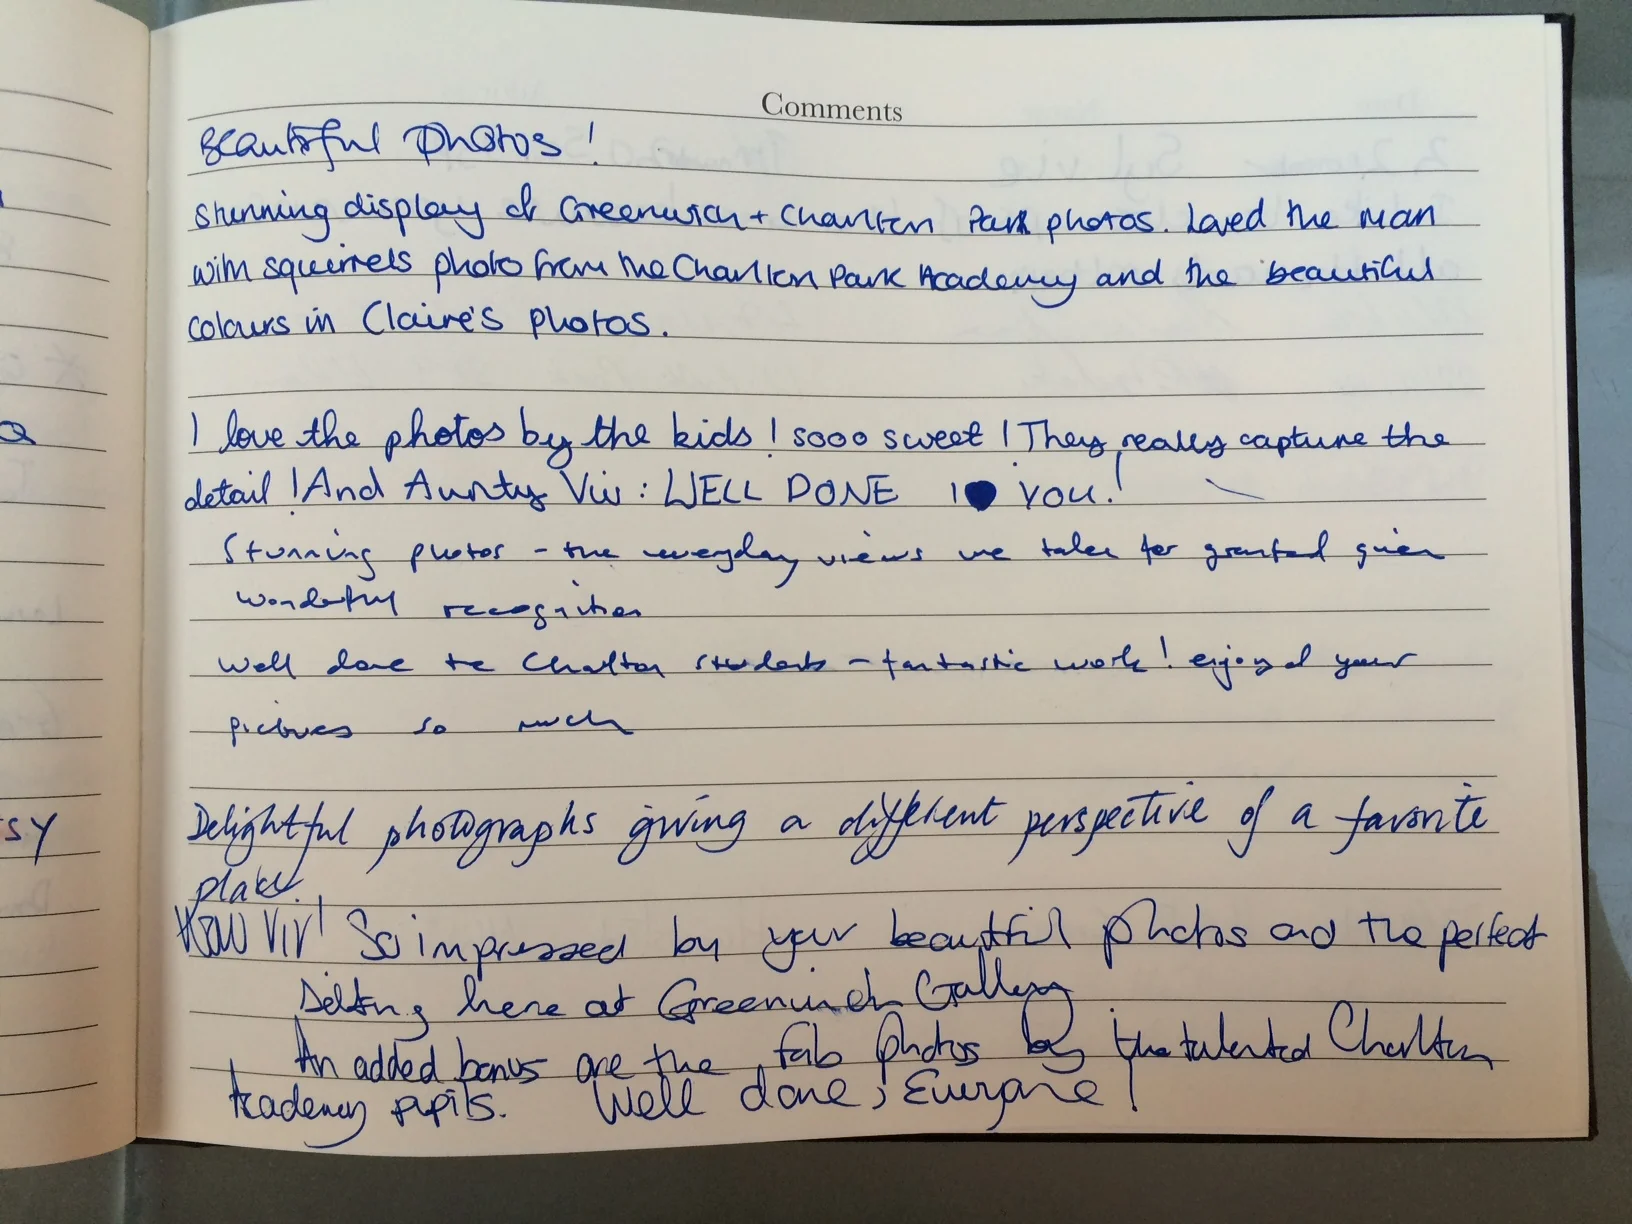 Comments
Beautiful Photos!
Stunning display of Greenwich + Charlton Park photos. Loved the man
with squirrels photo from the Charlton Park Academy and the beautiful
colours in Claire's photos.
I love the photos by the kids! sooo sweet! They really capture the
detail! And Aunty Viv: WELL DONE I ♥ YOU!
Stunning photos - the everyday views we take for granted given
wonderful recognition
Well done to Charlton students - fantastic work! enjoyed your
pictures so much
Delightful photographs giving a different perspective of a favorite
place.
Wow Viv! So impressed by your beautiful photos and the perfect
setting here at Greenwich Gallery
An added bonus are the fab photos by the talented Charlton
Academy pupils. Well done, Everyone!
sy